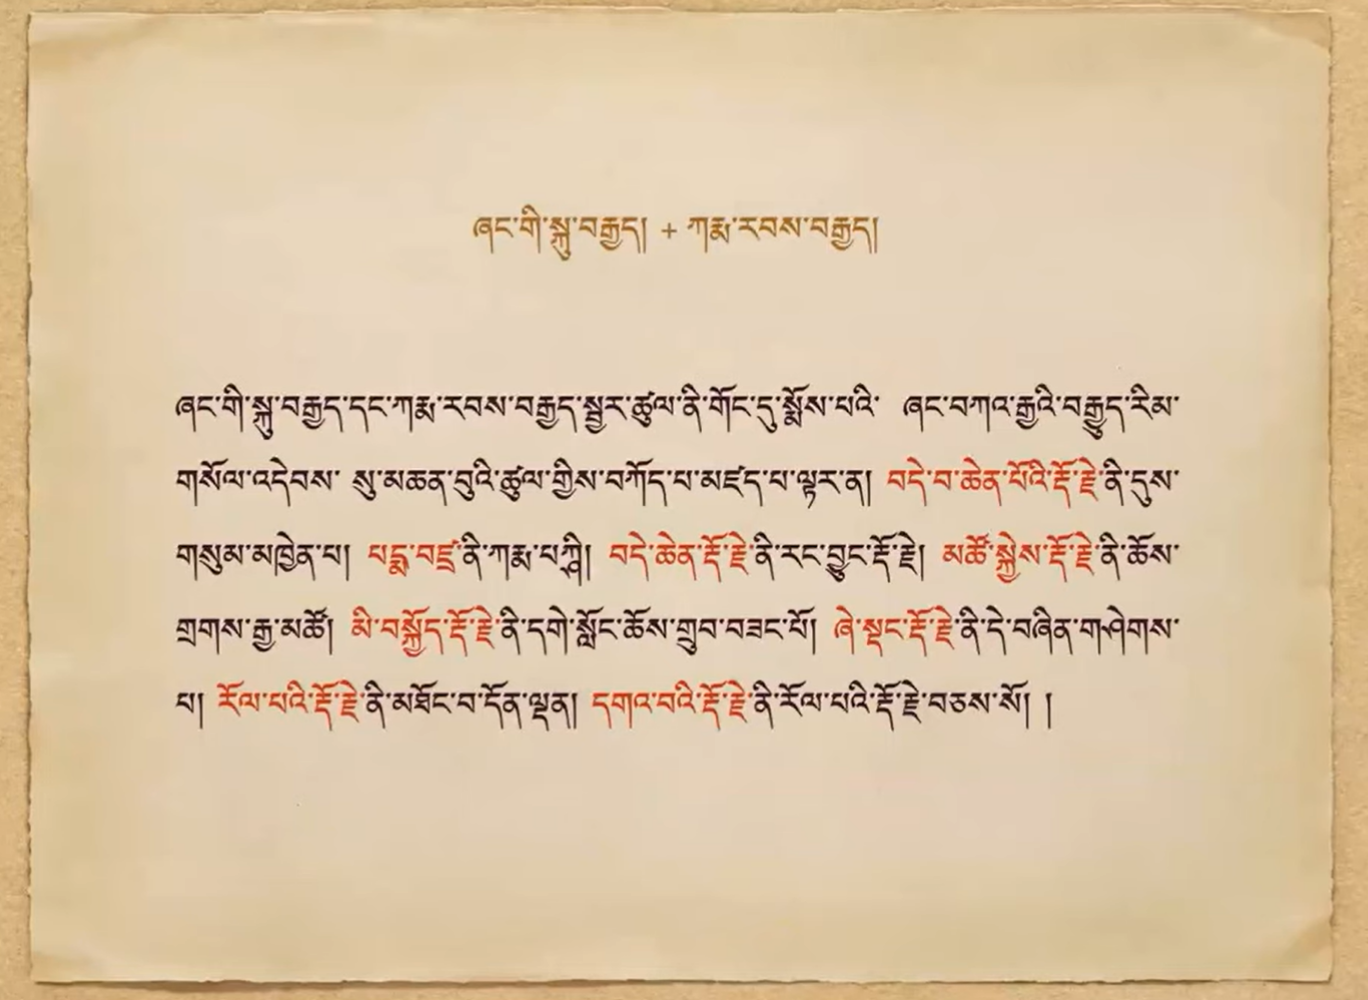 ཞང་གི་སྐུ་བརྒྱད། + ཀརྨ་རབས་བརྒྱད།
ཞང་གི་སྐུ་བརྒྱད་དང་ཀརྨ་རབས་བརྒྱད་སྦྱར་ཚུལ་ནི་གོང་དུ་སྨོས་པའི་ ཞང་བཀའ་རྒྱའི་བརྒྱུད་རིམ་
གསོལ་འདེབས་ སུ་མཆན་བུའི་ཚུལ་གྱིས་བཀོད་པ་མཛད་པ་ལྟར་ན། བདེ་བ་ཆེན་པོའི་རྡོ་རྗེ་ནི་དུས་
གསུམ་མཁྱེན་པ། པདྨ་བཛྲ་ནི་ཀརྨ་པཀྵི། བདེ་ཆེན་རྡོ་རྗེ་ནི་རང་བྱུང་རྡོ་རྗེ། མཚོ་སྐྱེས་རྡོ་རྗེ་ནི་ཆོས་
གྲགས་རྒྱ་མཚོ། མི་བསྐྱོད་རྡོ་རྗེ་ནི་དགེ་སློང་ཆོས་གྲུབ་བཟང་པོ། ཞེ་སྡང་རྡོ་རྗེ་ནི་དེ་བཞིན་གཤེགས་
པ། རོལ་པའི་རྡོ་རྗེ་ནི་མཐོང་བ་དོན་ལྡན། དགའ་བའི་རྡོ་རྗེ་ནི་རོལ་པའི་རྡོ་རྗེ་བཅས་སོ། །